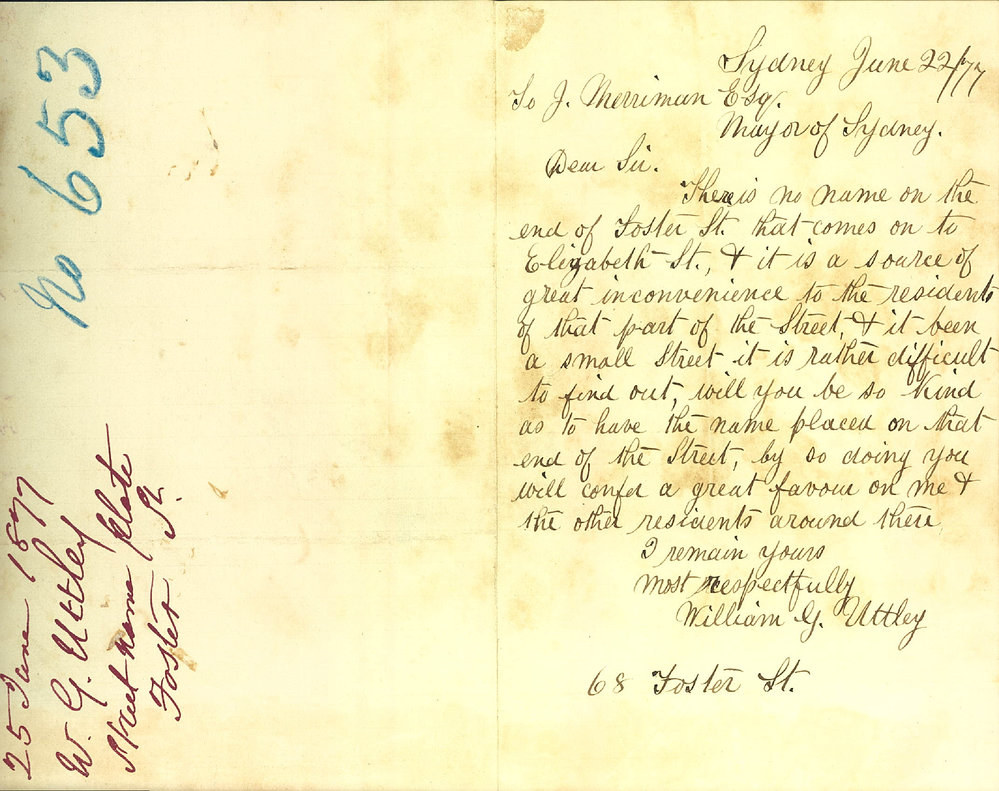 No 653
25 June 1877
W. G. Uttley
Street name plate
Foster St.
Sydney June 22/77
To J. Merriman Esq.
Mayor of Sydney.
Dear Sir.
There is no name on the
end of Foster St. that comes on to
Elizabeth St., & it is a source of
great inconvenience to the residents
of that part of the Street, & it been
a small Street it is rather difficult
to find out, will you be so kind
as to have the name placed on that
end of the Street, by so doing you
will confer a great favour on me &
the other residents around there
I remain yours
most respectfully
William G. Uttley
68 Foster St.